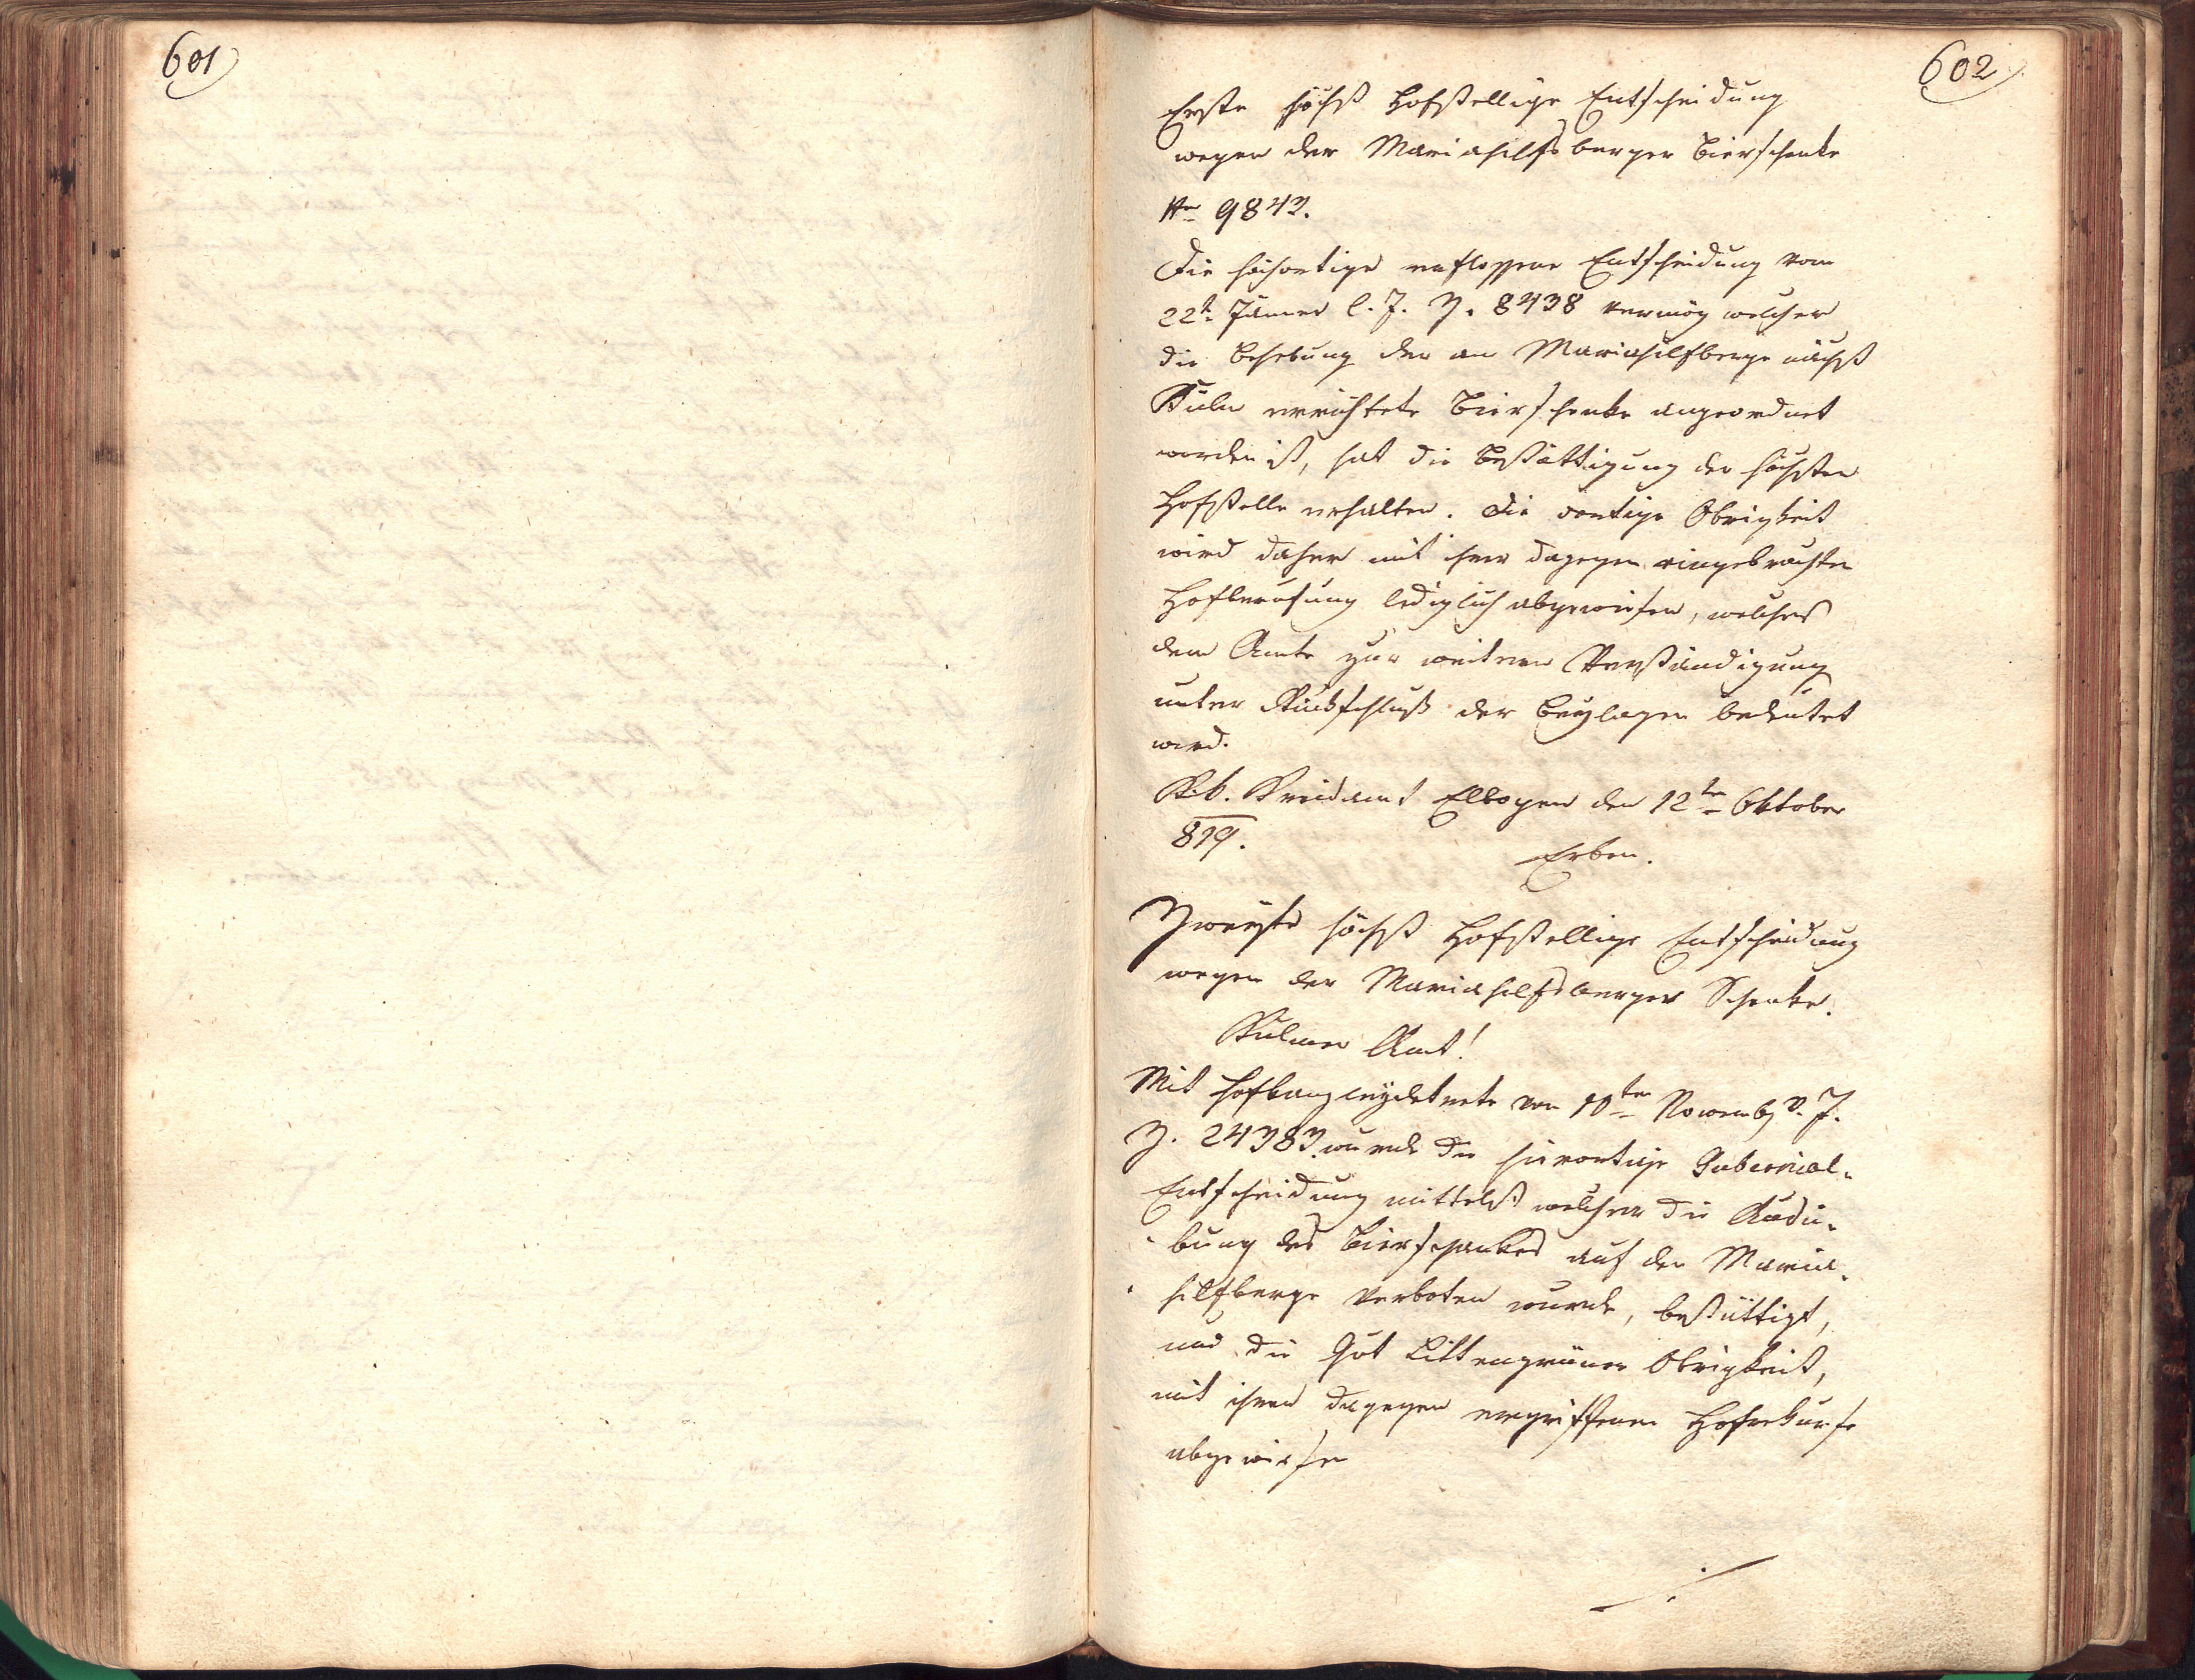 601
602.
Erste höchst Hofstellige Entscheidung
wegen der Mariahilfsberger Bierschenke
Nro 9842.
Die hierortige erflossene Entscheidung vom
22t Jäner l. J. Z. 8438 vermög welcher
die Behebung der am Mariahilfberge nächst
Kulm errichtete Bierschenke angeordnet
worden ist, hat die Bestättigung der höchsten
Hofstelle erhalten. Die dortige Obrigkeit
wird daher mit ihrer dagegen eingebrachten
Hofberufung lediglich abgewiesen, welches
dem Amte zur weitern Verständigung
unter Rückschluß der Beylagen bedeutet
wird.
K. k. Kreisamt Ellbogen den 12ten Oktober
819.
Erben.
Zweyte höchst Hofstellige Entscheidung
wegen der Mariahilfsberger Schenke.
Kulmer Amt!
Mit Hofkanzleydekrete vom 10ten Novemb. v. J.
Z. 24383 wurde die hierortige Gubernial-
Entscheidung mittelst welcher die Ausü-
bung des Bierschankes auf der Maria-
hilfberge verboten wurde, bestättigt,
und die Gut Littengrüner Obrigkeit,
mit ihren dagegen ergriffenen Hofrekurse
abgewiesen